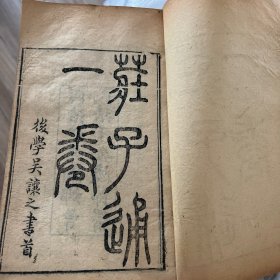 莊子通
一卷
後學吳讓之書首